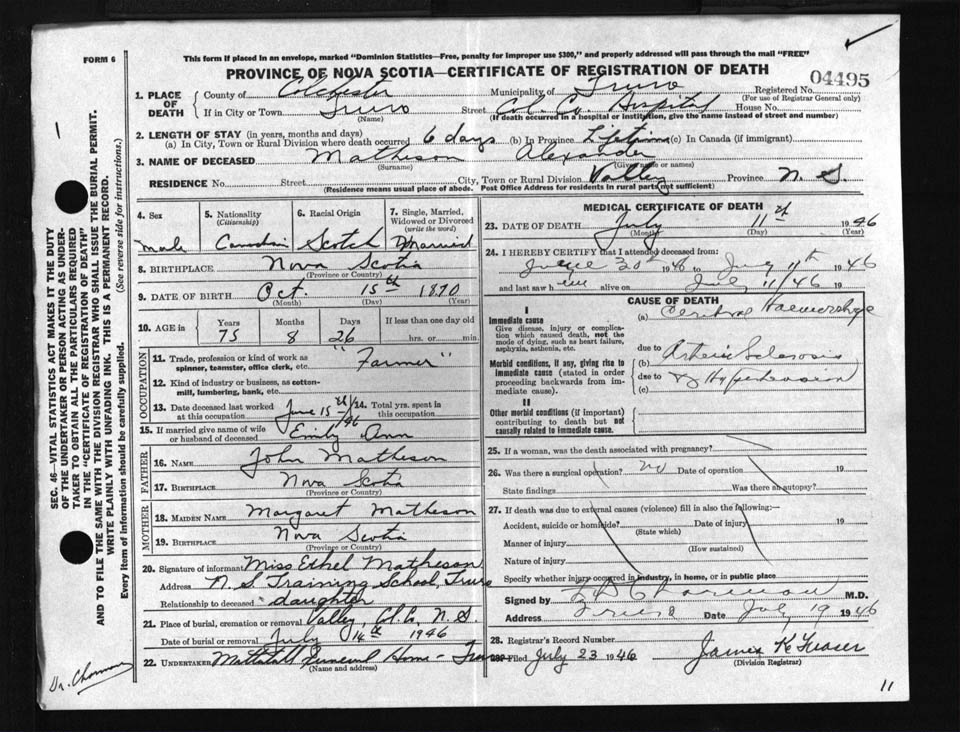 FORM 6
This form if placed in an envelope, marked "Dominion Statistics—Free, penalty for improper use $300," and properly addressed will pass through the mail "FREE"
PROVINCE OF NOVA SCOTIA—CERTIFICATE OF REGISTRATION OF DEATH
04495
1. PLACE OF DEATH
County of Colchester Municipality of Truro Registered No.
(For use of Registrar General only)
If in City or Town Truro Street Col. Co. Hospital House No.
(Name) (If death occurred in a hospital or institution, give the name instead of street and number)
2. LENGTH OF STAY (in years, months and days)
(a) In City, Town or Rural Division where death occurred 6 days (b) In Province Lifetime (c) In Canada (if immigrant)
3. NAME OF DECEASED Matheson Alexander
(Surname) (Given name or names)
RESIDENCE No. Street City, Town or Rural Division Valley Province N. S.
(Residence means usual place of abode. Post Office Address for residents in rural parts not sufficient)
4. Sex Male
5. Nationality (Citizenship) Canadian
6. Racial Origin Scotch
7. Single, Married, Widowed or Divorced (write the word) Married
8. BIRTHPLACE Nova Scotia
(Province or Country)
9. DATE OF BIRTH Oct. 15th 1870
(Month) (Day) (Year)
10. AGE in Years Months Days If less than one day old
75 8 26 hrs. or min.
OCCUPATION
11. Trade, profession or kind of work as spinner, teamster, office clerk, etc. "Farmer"
12. Kind of industry or business, as cotton-mill, lumbering, bank, etc.
13. Date deceased last worked at this occupation June 15th/46
14. Total yrs. spent in this occupation
15. If married give name of wife or husband of deceased Emily Ann
FATHER
16. NAME John Matheson
17. BIRTHPLACE Nova Scotia
(Province or Country)
MOTHER
18. MAIDEN NAME Margaret Matheson
19. BIRTHPLACE Nova Scotia
(Province or Country)
20. Signature of informant Miss Ethel Matheson
Address N. S Training School, Truro
Relationship to deceased daughter
21. Place of burial, cremation or removal Valley, Col. Co, N. S.
Date of burial or removal July 14th 1946
22. UNDERTAKER Mattatall Funeral Home - Truro
(Name and address)
MEDICAL CERTIFICATE OF DEATH
23. DATE OF DEATH July 11th 1946
(Month) (Day) (Year)
24. I HEREBY CERTIFY that I attended deceased from:
June 30th 1946 to July 11th 1946
and last saw him alive on July 11/46 19
CAUSE OF DEATH
I
Immediate cause
Give disease, injury or complication which caused death, not the mode of dying, such as heart failure, asphyxia, asthenia, etc.
(a) Cerebral Haemorrhage
due to
Morbid conditions, if any, giving rise to immediate cause (stated in order proceeding backwards from immediate cause).
(b) Arterio Sclerosis
due to
& Hypertension
(c)
II
Other morbid conditions (if important) contributing to death but not causally related to immediate cause.
25. If a woman, was the death associated with pregnancy?
26. Was there a surgical operation? no Date of operation 19
State findings Was there an autopsy?
27. If death was due to external causes (violence) fill in also the following:—
Accident, suicide or homicide? Date of injury 19
(State which)
Manner of injury
(How sustained)
Nature of injury
Specify whether injury occurred in industry, in home, or in public place
Signed by M.D.
Address Truro Date July 19 1946
28. Registrar's Record Number
29. Filed July 23 1946 James K Fraser
(Division Registrar)
SEC. 46—VITAL STATISTICS ACT MAKES IT THE DUTY
OF THE UNDERTAKER OR PERSON ACTING AS UNDER-
TAKER TO OBTAIN ALL THE PARTICULARS REQUIRED
IN THE "CERTIFICATE OF REGISTRATION OF DEATH"
AND TO FILE THE SAME WITH THE DIVISION REGISTRAR WHO SHALL ISSUE THE BURIAL PERMIT.
WRITE PLAINLY WITH UNFADING INK. THIS IS A PERMANENT RECORD.
Every item of information should be carefully supplied. (See reverse side for instructions.)
11